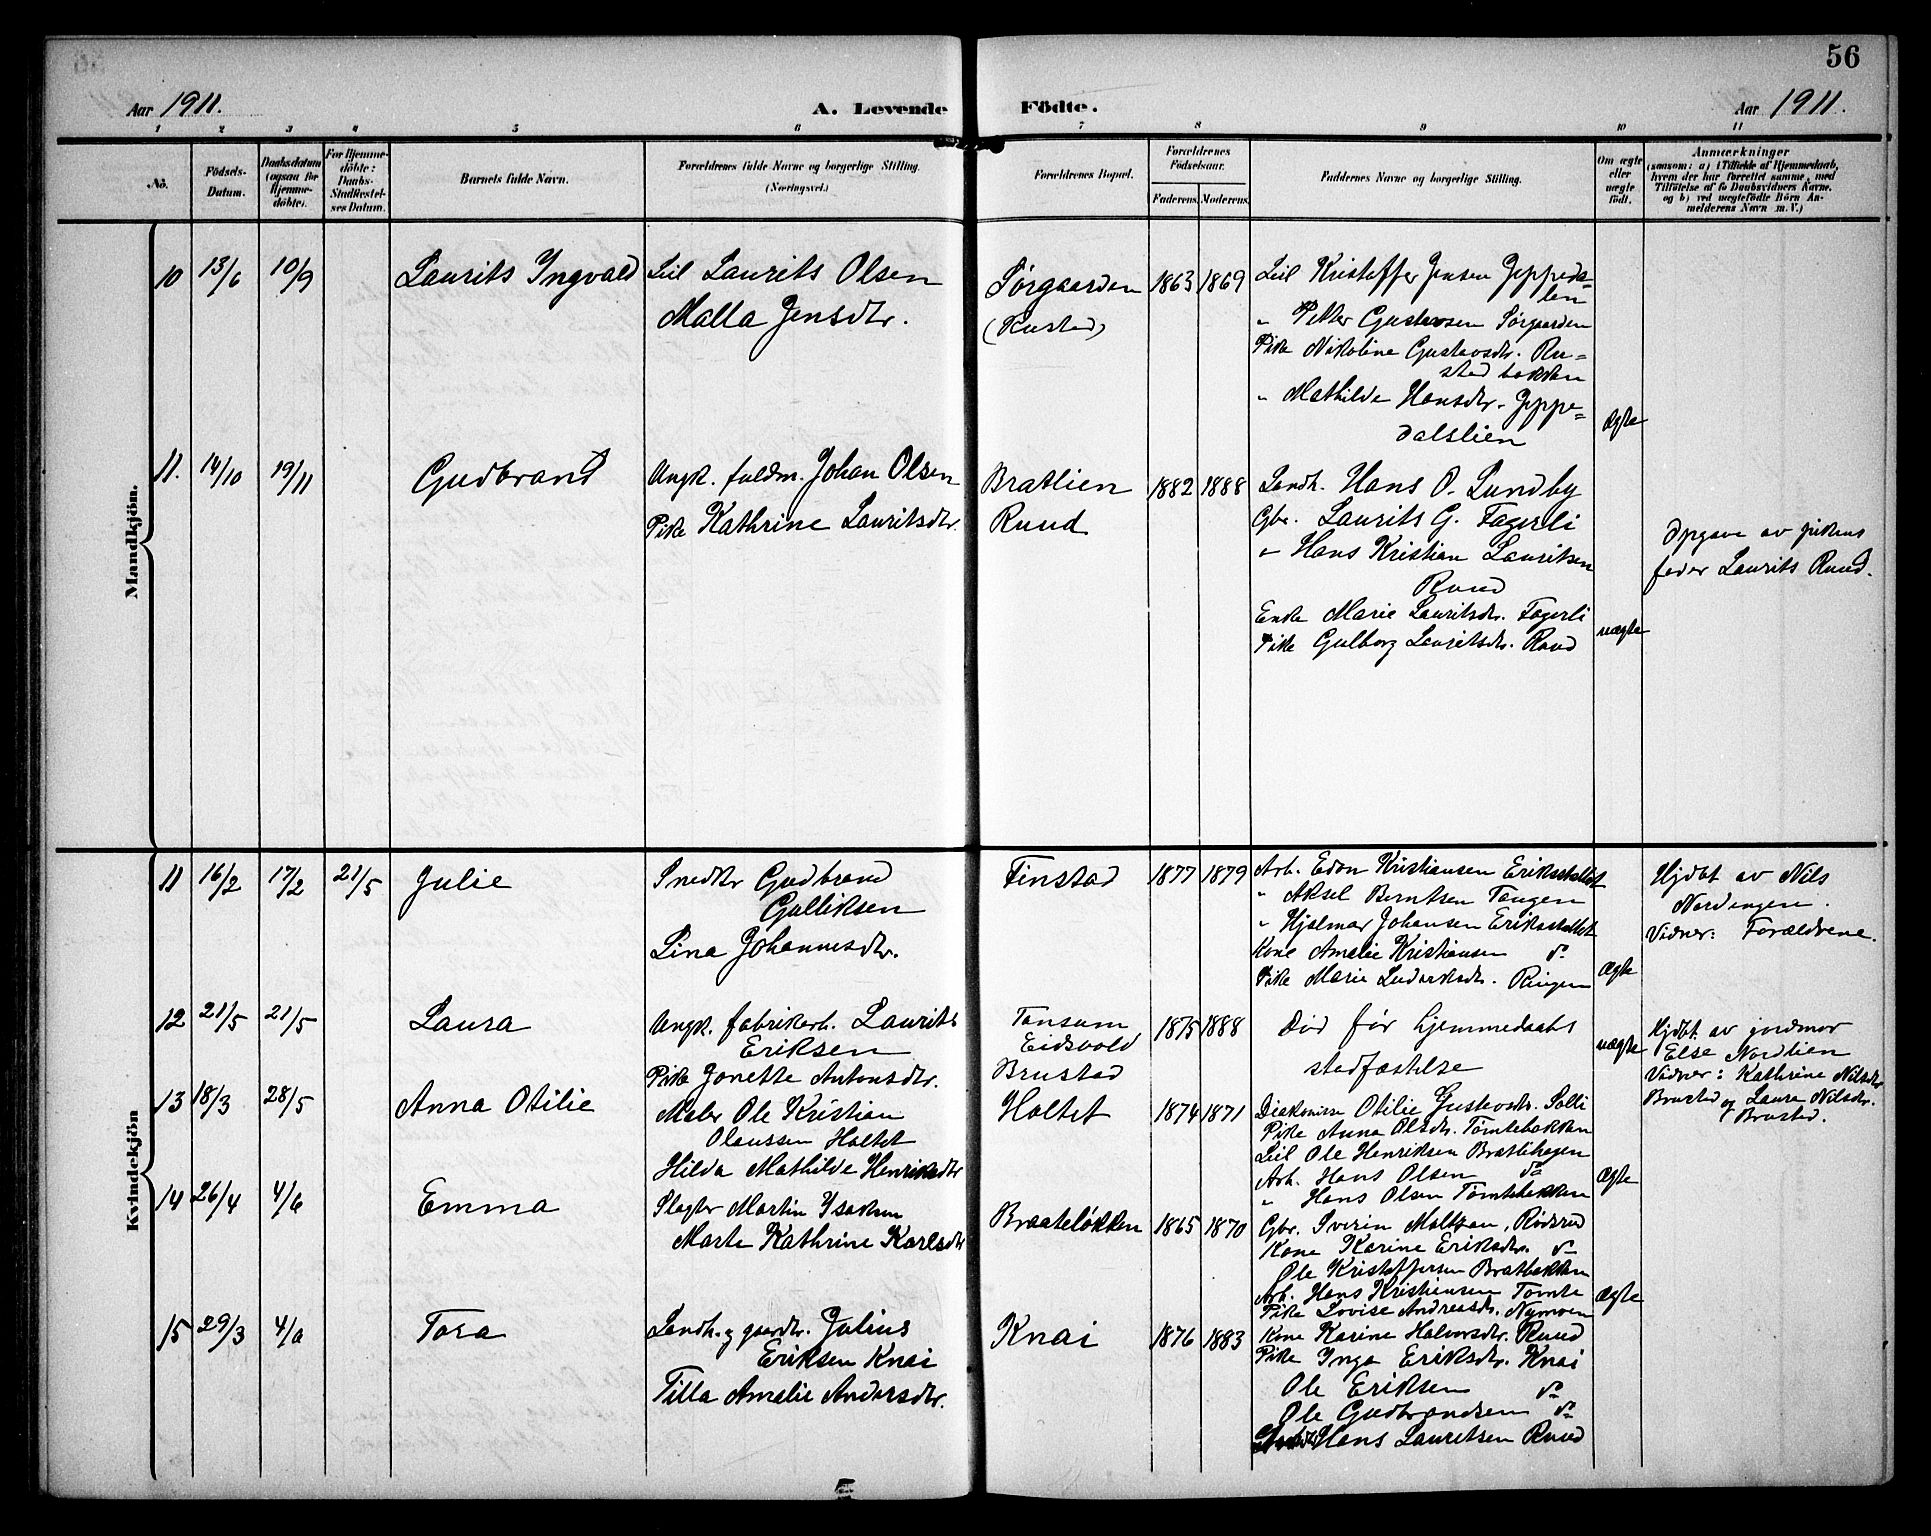 56
Aar 1911.
A. Levende Födte.
Aar 1911.
1 2 3 4 5 6 7 8 9 10 11
No.
Födsels-
Datum.
Daabsdatum
(ogsaa for
Hjemme-
döbte).
For Hjemme-
döbte:
Daabs-
Stadfæstel-
ses Datum.
Barnets fulde Navn.
Forældrenes fulde Navne og borgerlige Stilling.
(Næringsvei.)
Forældrenes Bopæl.
Forældrenes
Födselsaar.
Faderens. Moderens.
Faddernes Navne og borgerlige Stilling.
Om ægte
eller
uægte
födt.
Anmærkninger
(saasom: a) i Tilfælde af Hjemmedaab,
hvem der har forrettet samme, med
Tilföielse af to Daabsvidners Navne.
og b) ved uægtefödte Börn An-
melderens Navn m. V.)
Mandkjön.
10 13/6 10/9
Laurits Ingvald
Leil Laurits Olsen
Malla Jensdtr.
Sørgaarden
(Rustad)
1863 1869
Leil Kristoffer Jensen Jeppeda-
len
" Petter Gustavsen Sørgaarden
Pike Nikoline Gustavsdtr. Ru=
stad bakken
" Mathilde Hansdtr. Jeppe=
dalslien
Ægte
11. 14/10 19/11
Gudbrand
Ungk. fuldm. Johan Olsen
Pike Kathrine Lauritsdtr.
Bratlien
Ruud
1882 1888
Landh. Hans O. Lundby
Gbr. Laurits G. Fagerli
" Hans Kristian Lauritsen
Ruud
Enke Marie Lauritsdtr. Fagerli
Pike Gulborg Lauritsdtr. Ruud
uægte
Opgave av pikens
fader Laurits Ruud.
Kvindekjön
11 16/2 17/2 21/5
Julie
Snedkr Gudbrand
Gulliksen
Lina Johannesdtr.
Finstad
1877 1879
Arb. Edon Kristiansen Eriksstallet
" Aksel Berntsen Tangen
" Hjalmar Johansen Eriksstallet
Kone Amalie Kristiansen do
Pike Marie Ludviksdtr. Ringen
Ægte
Hjdbt av Nils
Nordengen.
Vidner: Forældrene.
12 21/5 21/5
Laura
Ungk. fabrikarb. Laurits
Eriksen
Pike Jonette Antonsdtr.
Tansum
Eidsvold
Brustad
1875 1888
Død før hjemmedaabs
stadfæstelse
uægte
Hjdbt. av jordmor
Else Nordlien
Vidner: Kathrine Nilsdtr
Brustad og Laura Nilsdtr.
Brustad.
13 18/3 28/5
Anna Otilie
Maler Ole Kristian
Olaussen Holtet
Hilda Mathilde Henriksdtr
Holtet
1874 1871
Diakonisse Otilie Gustavsdtr. Solli
Pike Anna Olsdtr. Tømtebakken
Leil Ole Henriksen Bratlihagen
Arb. Hans Olsen do
" Hans Olsen Tømtebakken
Ægte
14 26/4 4/6
Emma
Slagter Martin Isaksen
Marte Kathrine Karlsdtr
Braateløkken
1865 1870
Gbr. Sverin Moltzan, Rødsrud
Kone Karine Eriksdtr. do
Ole Kristoffersen Bratbakken
Arb. Hans Kristiansen Tømte
Pike Lovise Andreasdr. Nymoen
Ægte
15 29/3
Tora
Landh. og gaardtr. Julius
Eriksen Knai
Tilla Amalie Andersdtr.
Knai
1876 1883
Kone Karine Halvorsdtr. Ruud
Pike Inga Eriksdtr. Knai
Ole Eriksen do
Ole Gudbrandsen do
Hans Lauritsen Ruud